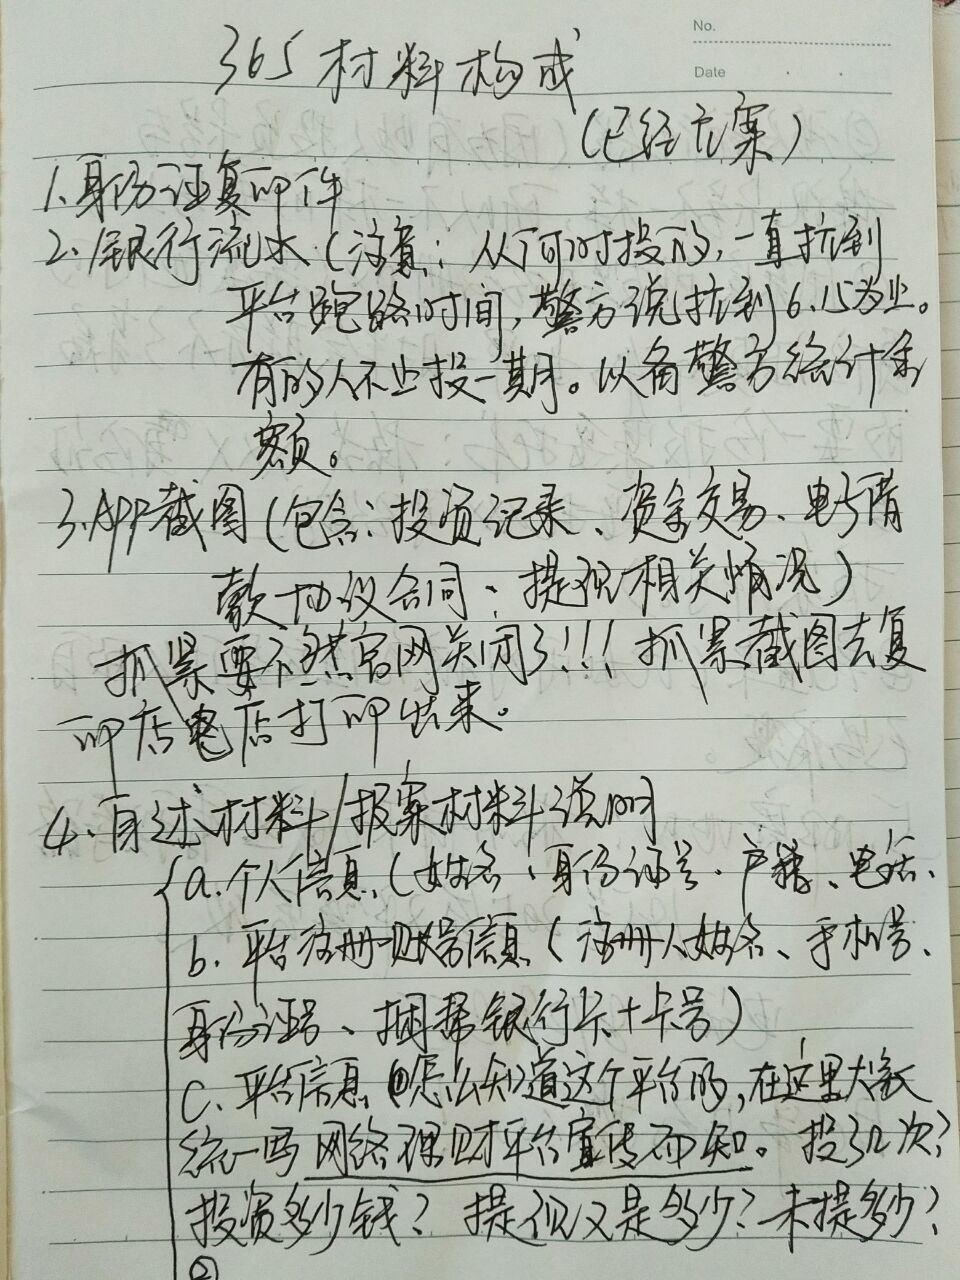 No.
Date
365材料构成
(已经立案)
1.身份证复印件
2.银行流水(注意:从何时投的,一直拉到
平台跑路时间,警方说拉到6.15为止。
有的人不止投一期。以备警方统计金
额。
3.APP截图(包含:投资记录、资金交易、电子借
款协议合同、提现相关情况)
抓紧要不然官网关闭了!!!抓紧截图去复
印店电店打印出来。
4.自述材料/报案材料说明
a.个人信息(姓名、身份证号、户籍、电话、
b.平台注册账号信息(注册人姓名、手机号、
身份证号、捆绑银行卡+卡号)
C.平台信息①怎么知道这个平台的,在这里大家
统一写网络理财平台宣传而知。投了几次?
投资多少钱?提现又是多少?未提多少?
②